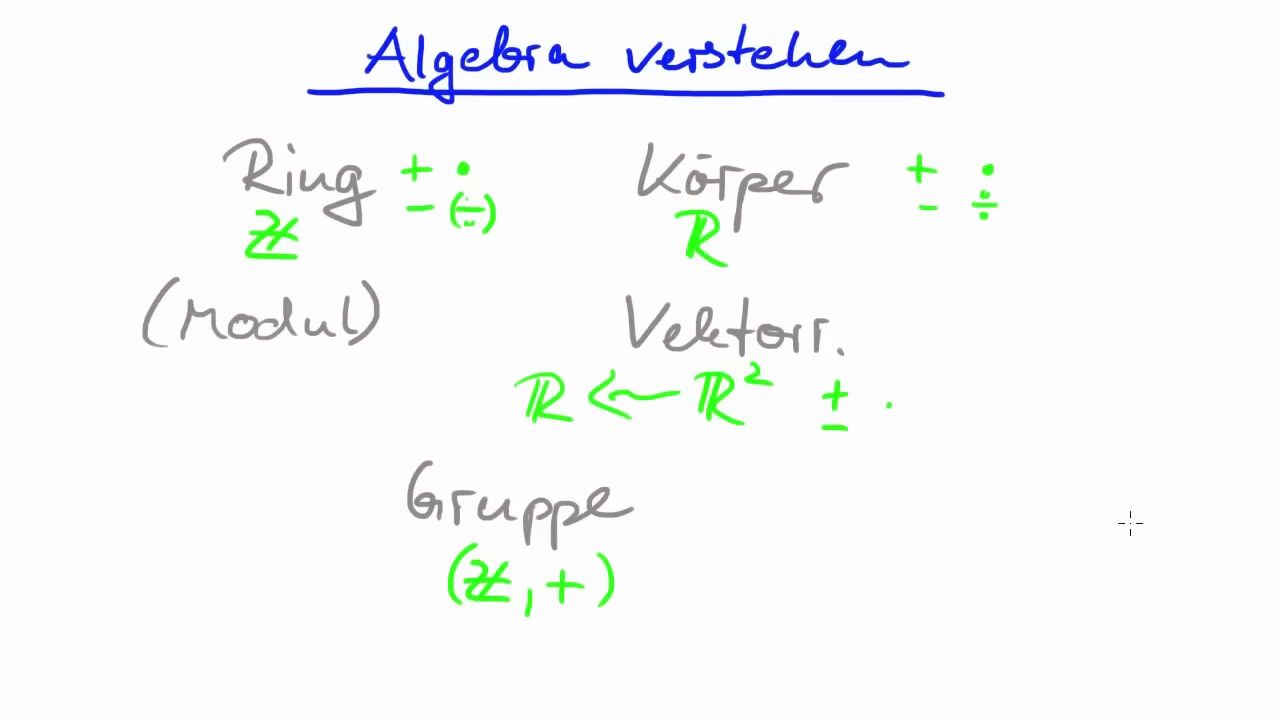 Algebra verstehen
Ring + · Körper + ·
− (÷) − ÷
ℤ ℝ
(Modul) Vektorr.
ℝ ← ℝ² + − ·
Gruppe
(ℤ, +)